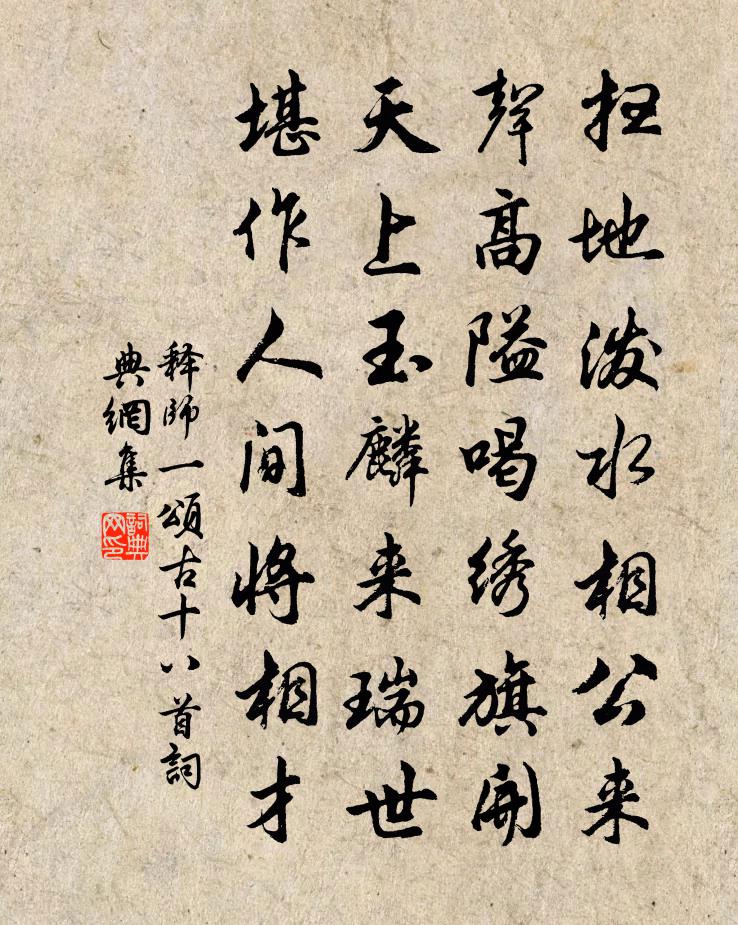 扫地泼水相公来
聲高隘喝绣旗開
天上玉麟来瑞世
堪作人间将相才
释師一頌古十八首詞
典網集
詞典
网印